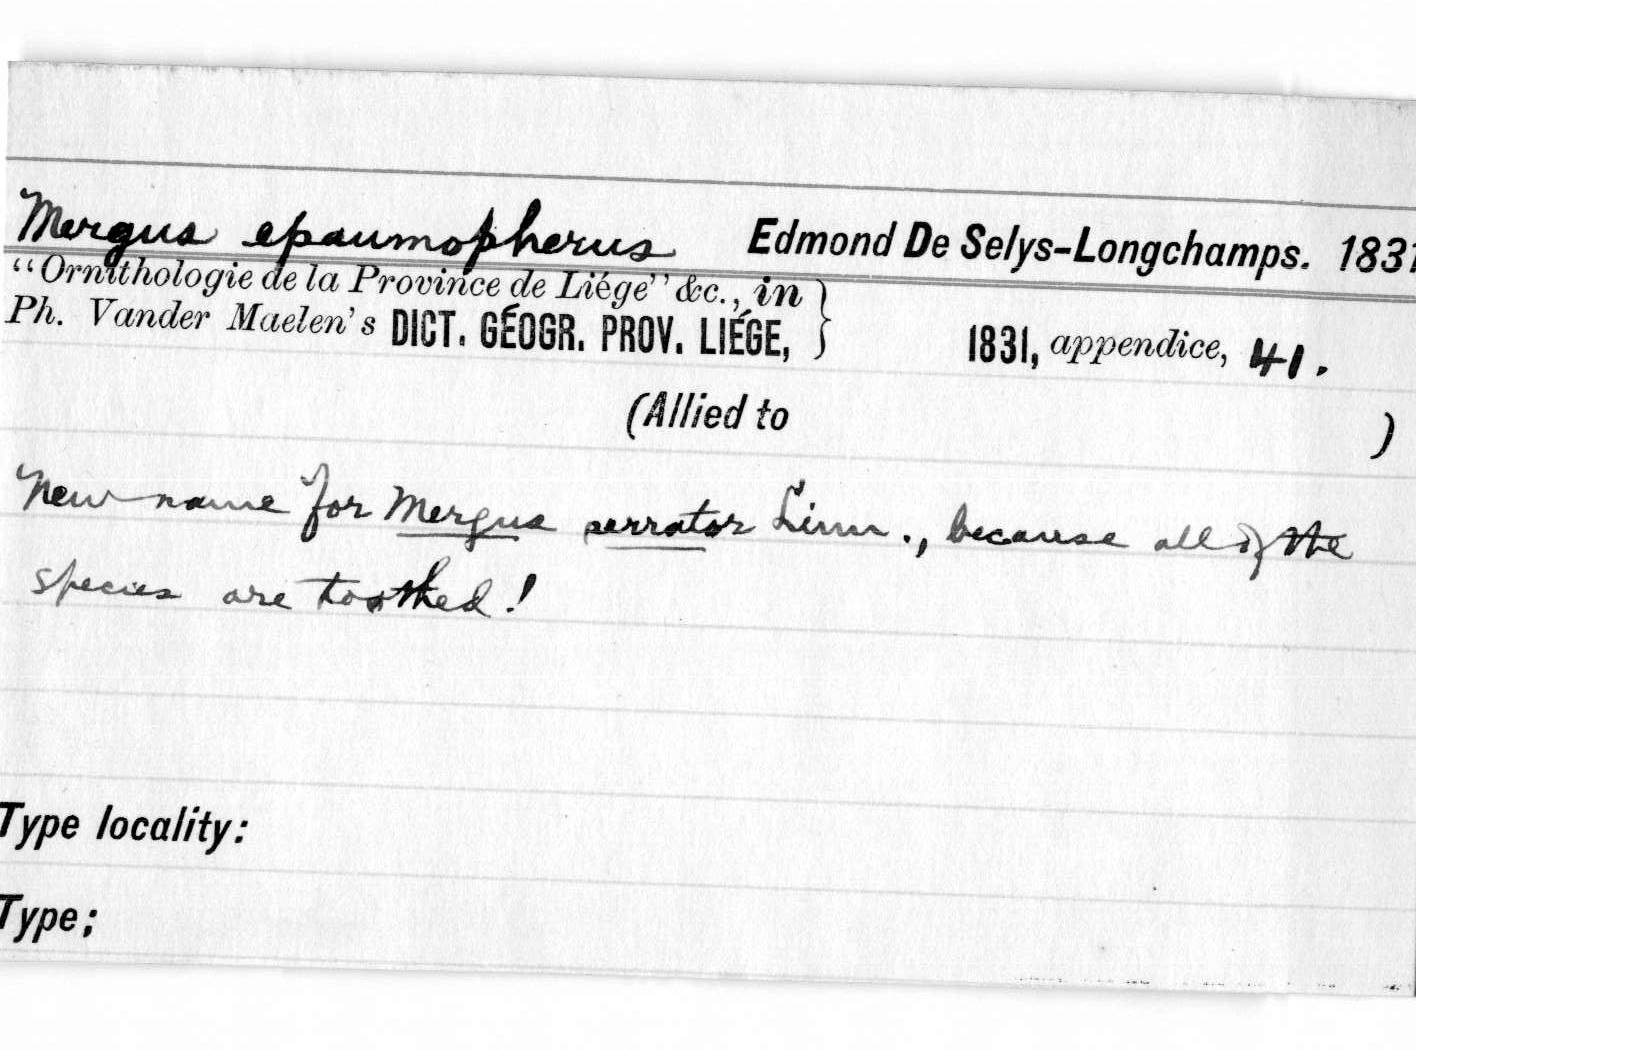 Mergus epaumopherus Edmond De Selys-Longchamps. 1831
“Ornithologie de la Province de Liége” &c., in
Ph. Vander Maelen's DICT. GÉOGR. PROV. LIÉGE, } 1831, appendice, 41.
(Allied to )
New name for Mergus serrator Linn., because all of the
species are toothed!
Type locality:
Type;